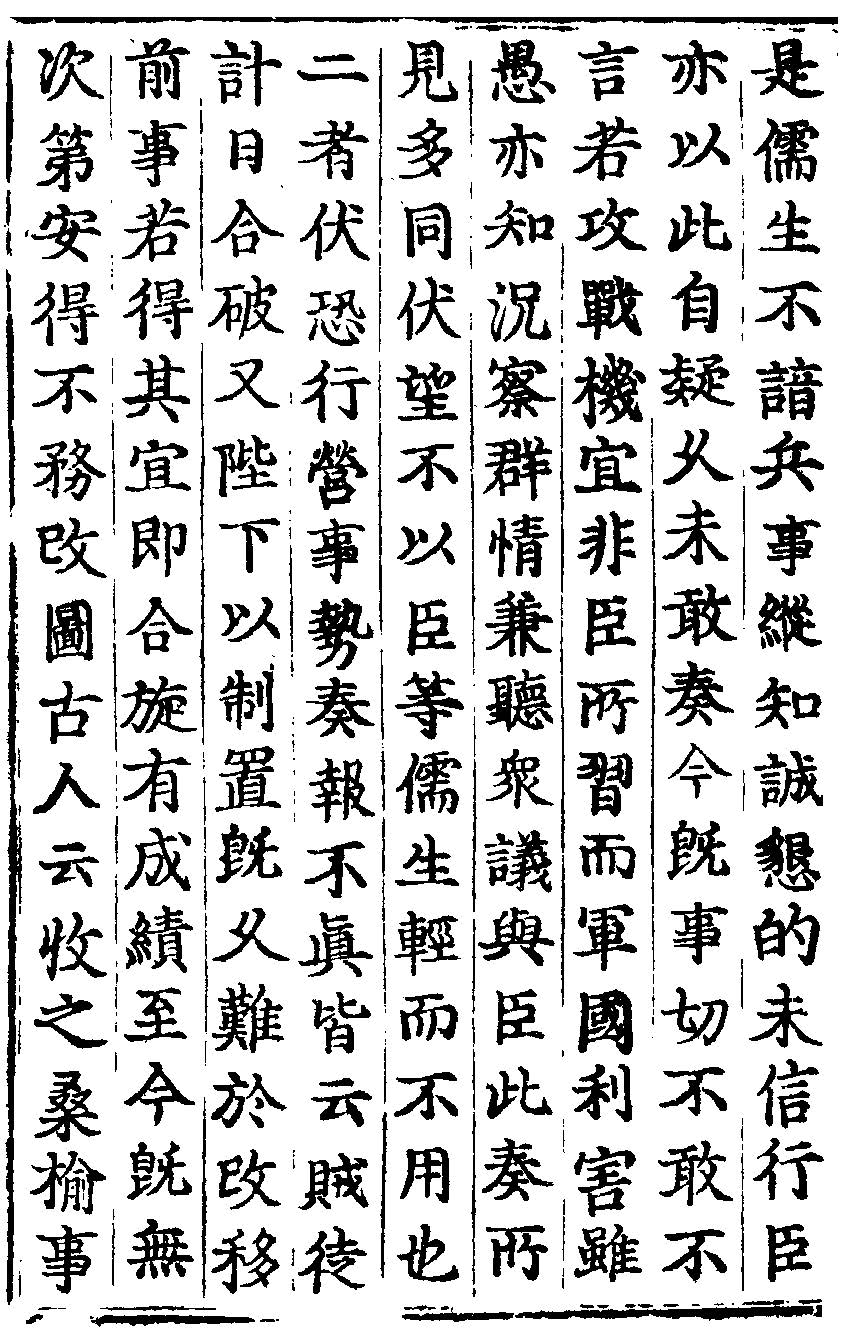 是儒生不諳兵事縱知誠懇的未信行臣
亦以此自疑乆未敢奏今旣事切不敢不
言若攻戰機宜非臣所習而軍國利害雖
愚亦知況察群情兼聽衆議與臣此奏所
見多同伏望不以臣等儒生輕而不用也
二者伏恐行營事勢奏報不眞皆云賊徒
計日合破又陛下以制置旣乆難於改移
前事若得其宜即合旋有成績至今旣無
次第安得不務改圖古人云收之桑榆事